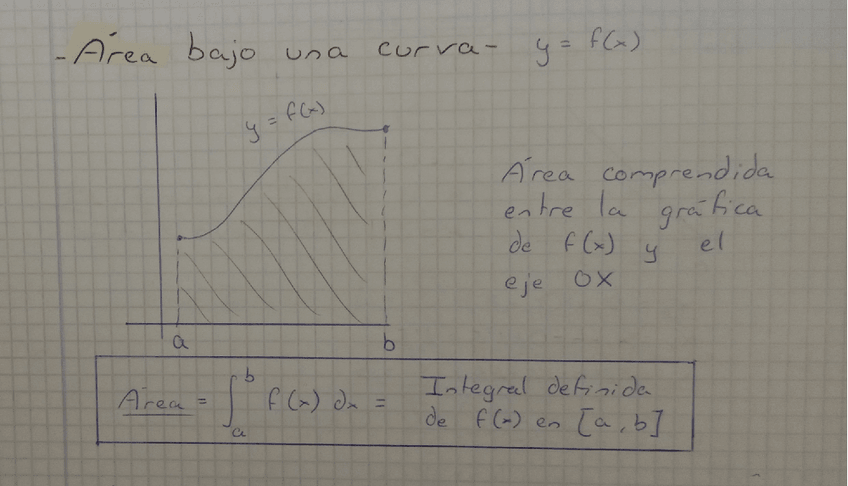 - Área bajo una curva - y = f(x)
y = f(x)
Área comprendida
entre la gráfica
de f(x) y el
eje OX
a b
Área = ∫ₐᵇ f(x) dx = Integral definida
de f(x) en [a, b]